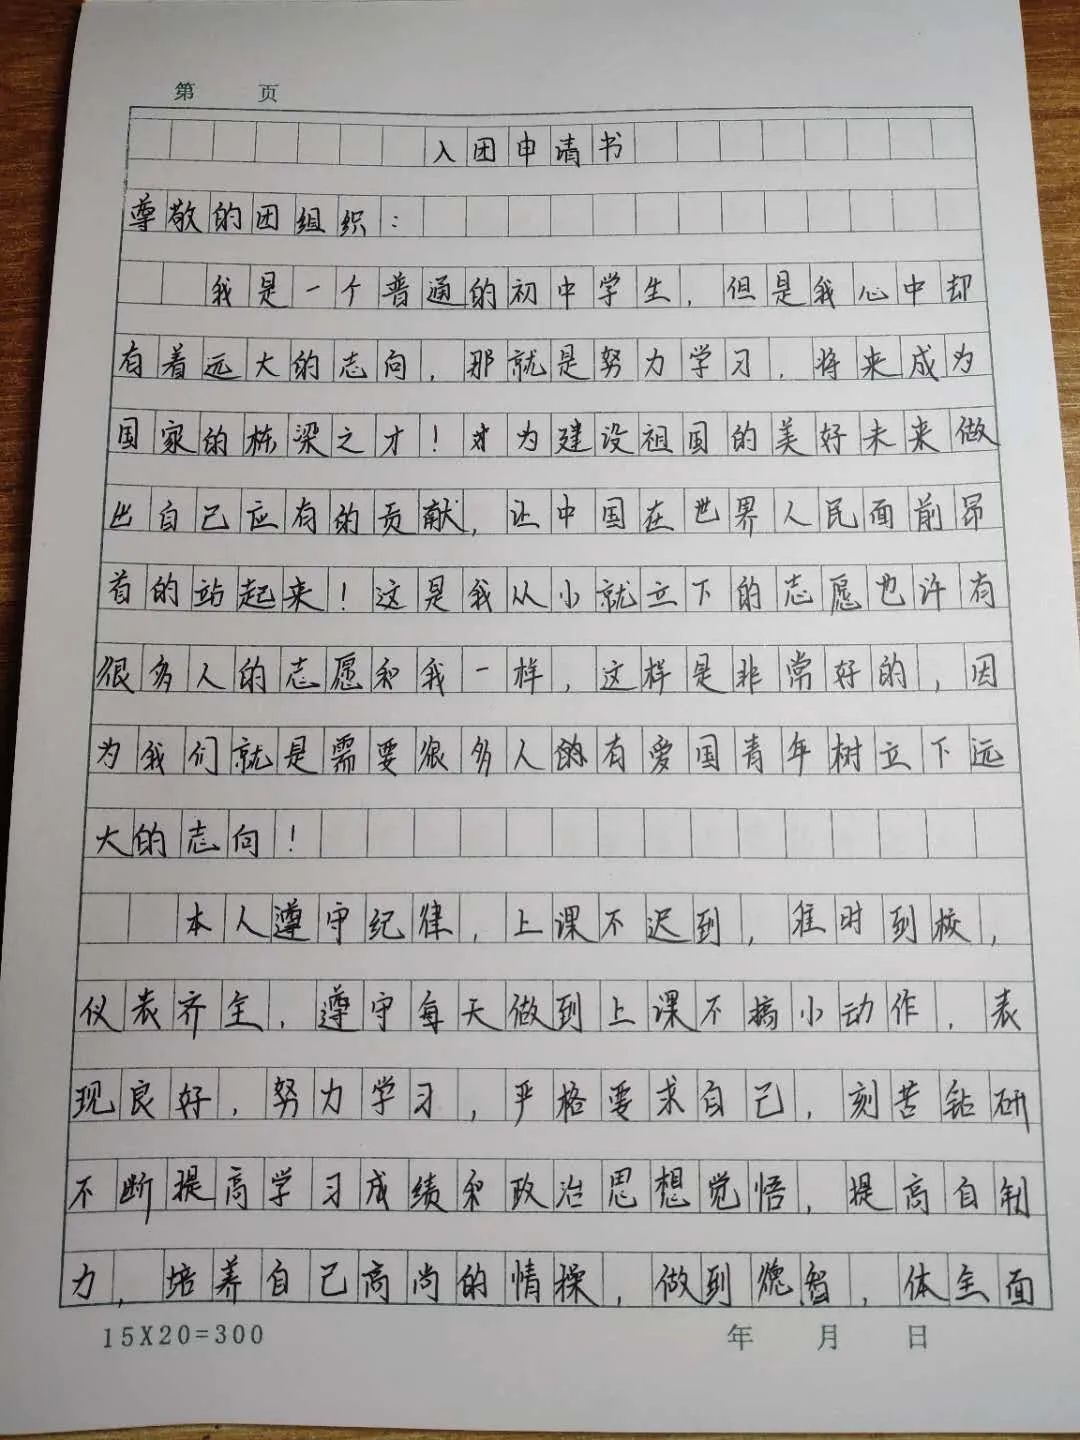 第 页
入团申请书
尊敬的团组织：
我是一个普通的初中学生，但是我心中却
有着远大的志向，那就是努力学习，将来成为
国家的栋梁之才！才为建设祖国的美好未来做
出自己应有的贡献，让中国在世界人民面前昂
首的站起来！这是我从小就立下的志愿也许有
很多人的志愿和我一样，这样是非常好的，因
为我们就是需要很多人的有爱国青年树立下远
大的志向！
本人遵守纪律，上课不迟到，准时到校，
仪表齐全，遵守每天做到上课不搞小动作，表
现良好，努力学习，严格要求自己，刻苦钻研
不断提高学习成绩和政治思想觉悟，提高自制
力，培养自己高尚的情操，做到德智，体全面
15X20=300 年 月 日